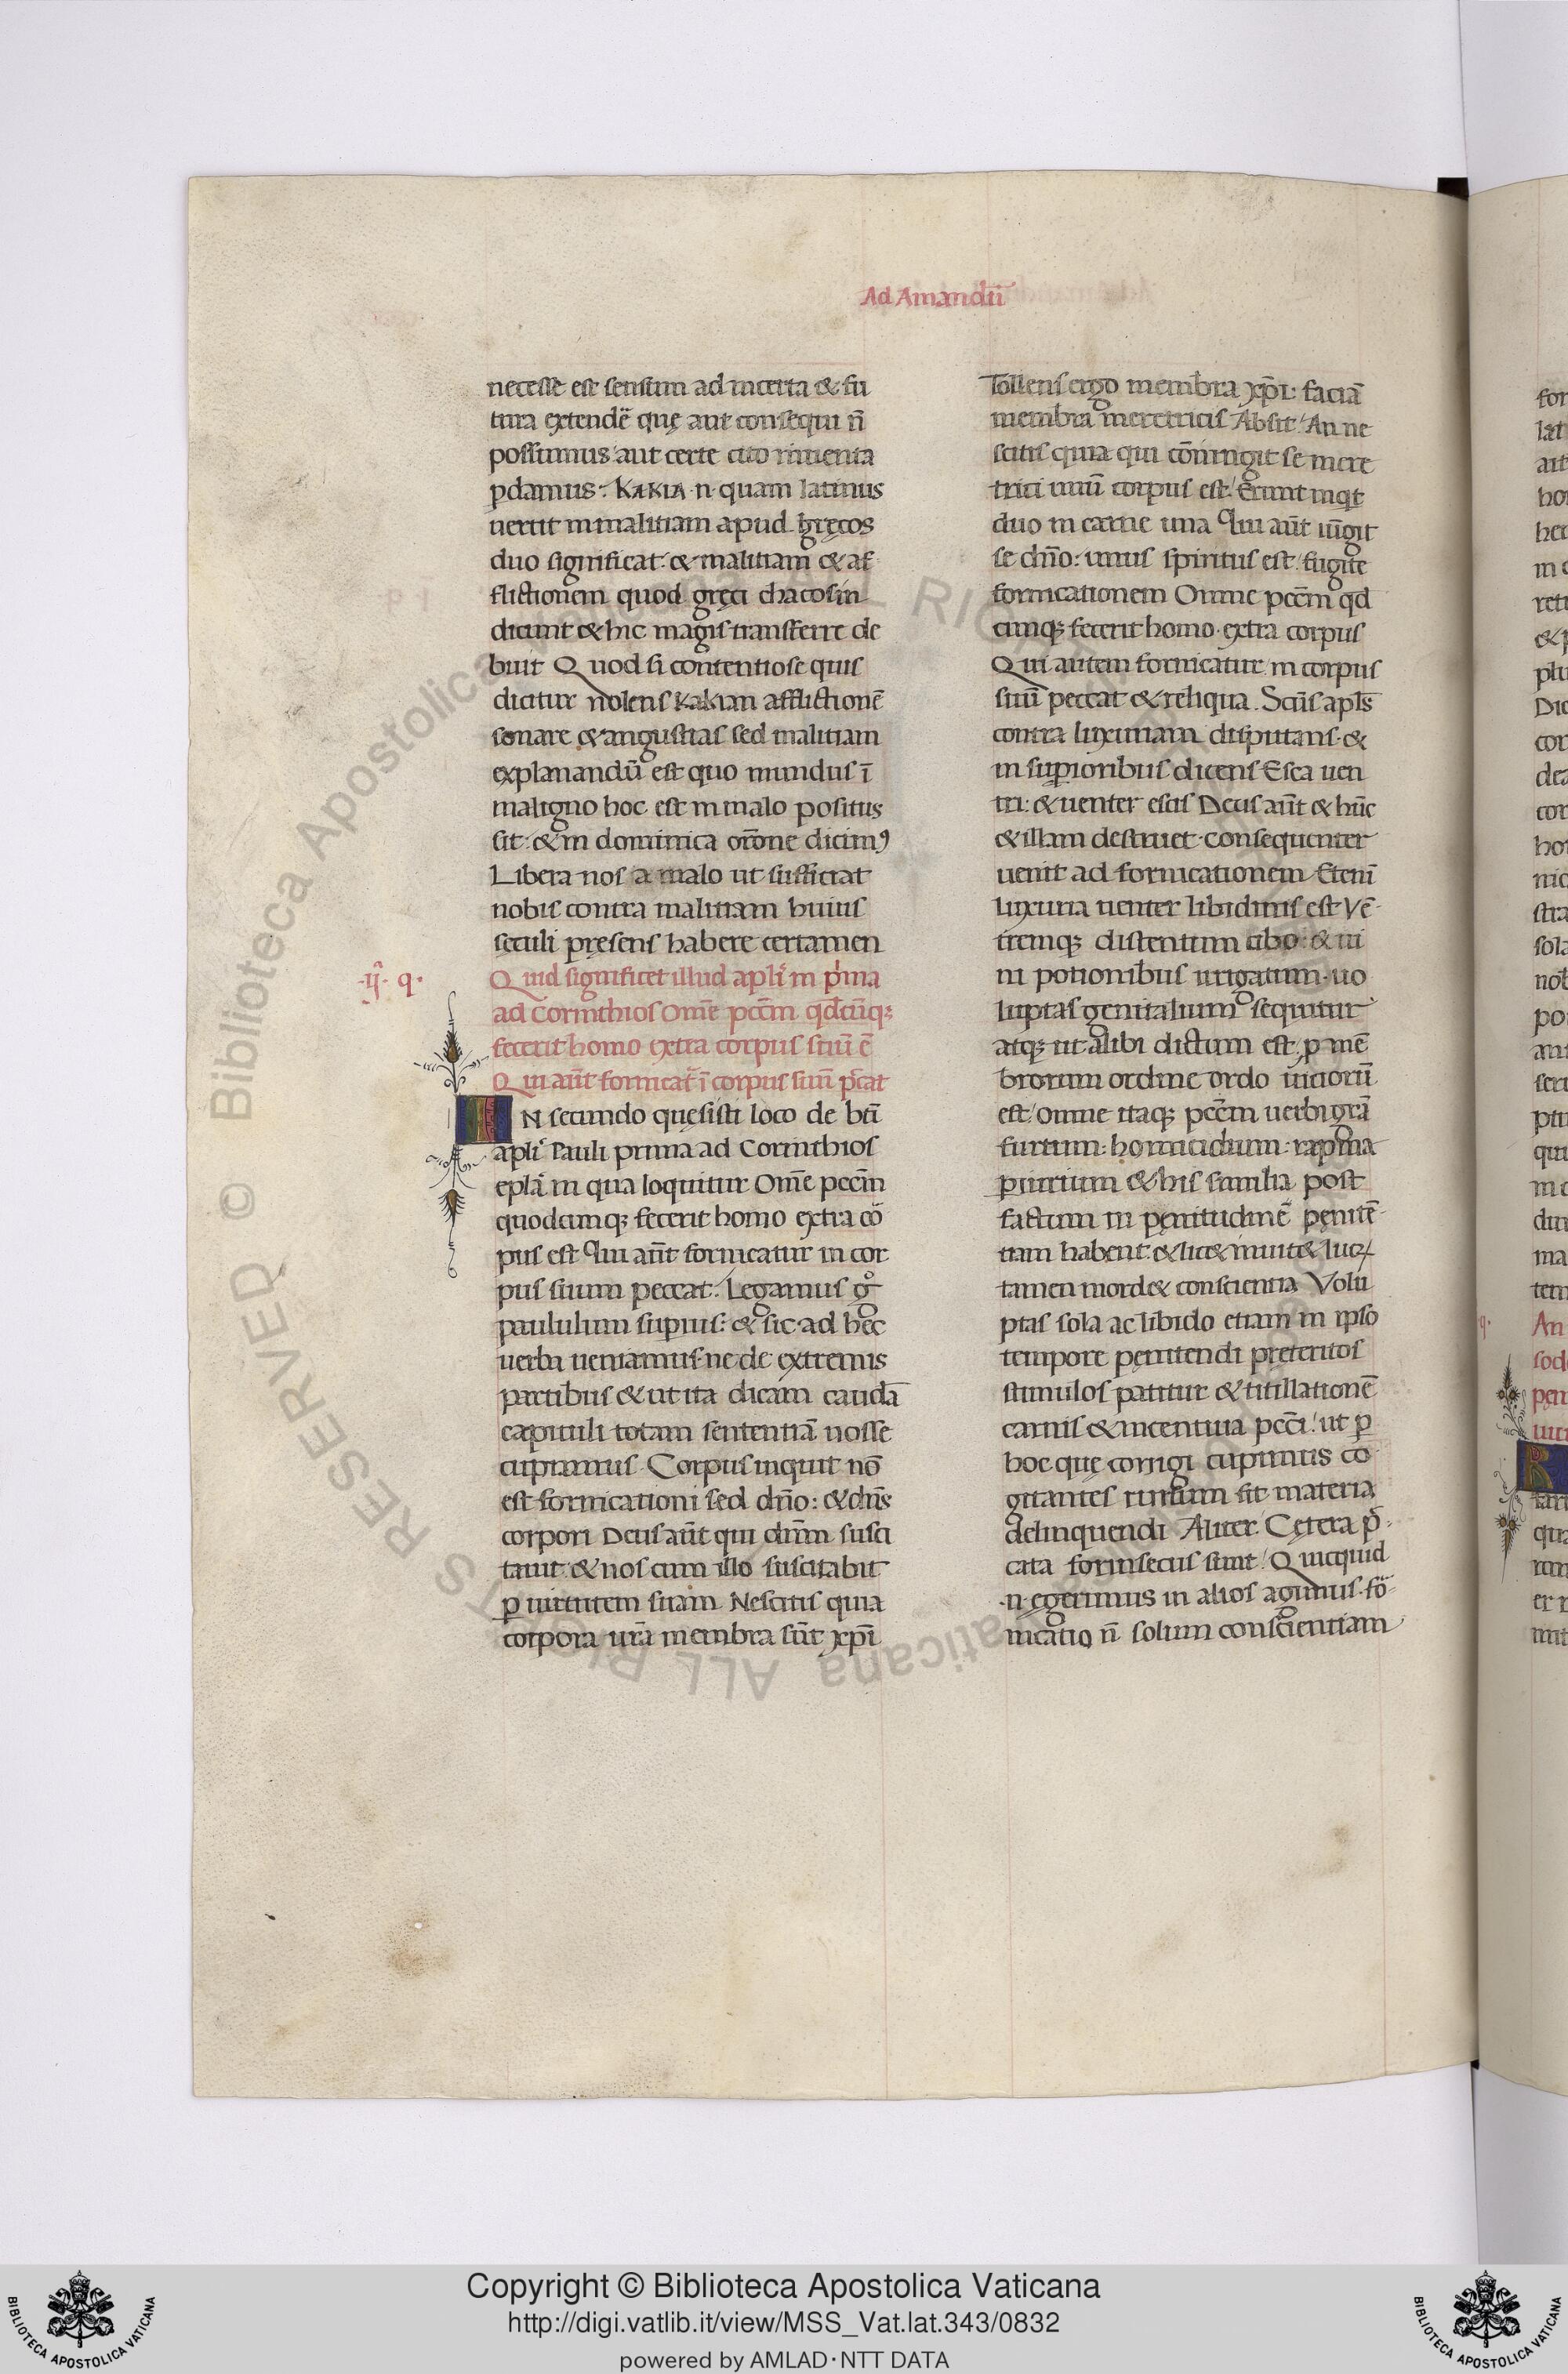 Ad Amandū
necesse est sensum ad incerta & fu
tura extendē que aut consequi n̄
possumus aut certe cito inuenta
pdamus: KAKIA n quam latinus
uertit in malitiam apud gręcos
duo significat & malitiam & af
flictionem quod gręci chacosin
dicunt & hic magis transferre de
buit Quod si contentiose quis
dicitur nolens kakian afflictionē
sonare & angustias sed malitiam
explanandū est quo mundus ī
maligno hoc est in malo positus
sit: & in dominica orōne dicimꝰ
Libera nos a malo ut sufficiat
nobis contra malitiam huius
sęculi pręsens habere certamen
·ij· q·
Quid significet illud apli in pͥma
ad Corinthios Om̄e pccm̄ qđcūq;
fecerit homo extra corpus suū ē
Qui aūt fornicat̄ ī corpus suū pc̄cat
IN secundo quęsisti loco de bti
apli Pauli prima ad Corinthios
epla in qua loquitur Om̄e pccm̄
quodcumq; fecerit homo extra co
pus est Qui aūt fornicatur in cor
pus suum peccat: Legamus gͦ
paululum supius: & sic ad hęc
uerba ueniamus ne de extremis
partibus & ut ita dicam caudā
capituli totam sententiā nosse
cupiamus Corpus inquit nō
est fornicationi sed dn̄o: & dn̄s
corpori Deus aūt qui dn̄m susci
tauit & nos cum illo suscitabit
ꝑ uirtutem suam Nescitis quia
corpora ur̄a membra sūt xp̄i
Tollens ergo membra xp̄i: faciā
membra meretricis Absit An ne
scitis quia qui cōiungit se mere
trici unū corpus est Erunt inqt
duo in carne una Qui aūt iūgit
se dn̄o: unus spiritus est fugite
fornicationem Omne pccm̄ qd
cumq; fecerit homo extra corpus
Qui autem fornicatur in corpus
suū peccat & reliqua. Scūs apls̄
contra luxuriam disputans &
in supioribus dicens Esca uen
tri: & uenter escis Deus aūt & hūc
& illam destruet consequenter
uenit ad fornicationem Etenī
luxuria uenter libidinis est Vē
tremq; distentum cibo: & ui
ni potionibus irrigatum uo
luptas genitalium sequitur
atq; ut alibi dictum est ꝑ mē
brorum ordine ordo uiciorū
est Omne itaq; pccm̄ uerbi grā
furtum: homicidium: rapina
ꝑiurium & his similia post
factum in pęnitudinē pęnitē
tiam habent & lic& inuit& lucꝝ
tamen mord& conscientia Volu
ptas sola ac libido etiam in ipso
tempore pęnitendi pręteritos
stimulos patitur & titillationē
carnis & incentiua pccī ut ꝑ
hoc quę corrigi cupimus co
gitantes rursum sit materia
delinquendi Aliter Cętera pͨ
cata forinsecus sunt Quicquid
n egerimus in alios agimus fō
nicatio n̄ solum conscientiam
Copyright © Biblioteca Apostolica Vaticana
http://digi.vatlib.it/view/MSS_Vat.lat.343/0832
powered by AMLAD·NTT DATA